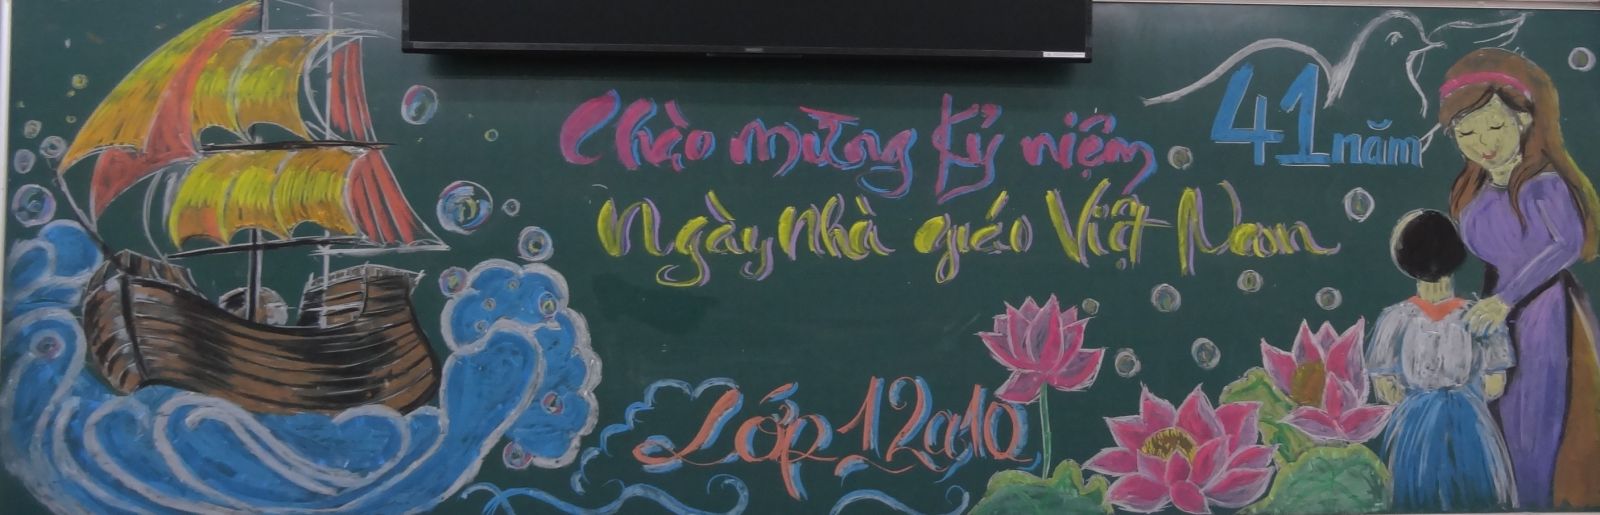 Chào mừng kỷ niệm 41 năm
Ngày nhà giáo Việt Nam
Lớp 12a10